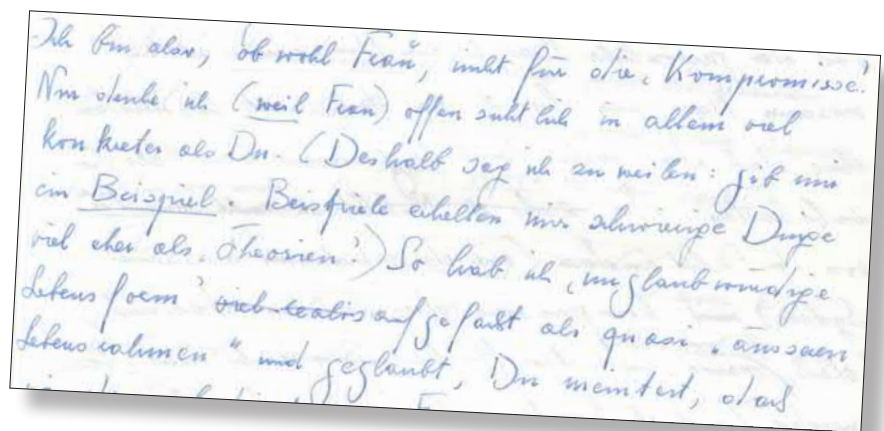 Ich bin also, obwohl Frau, nicht für die „Kompromisse“.
Nur denke ich (weil Frau) offensichtlich in allem viel
konkreter als Du. (Deshalb sag ich zuweilen: gib mir
ein Beispiel. Beispiele erhellen mir schwierige Dinge
viel eher als „Theorien“.) So hab ich „unglaubwürdige
Lebensform“ aufgefaßt als quasi „äusseren
Lebensrahmen“ und geglaubt, Du meintest, daß